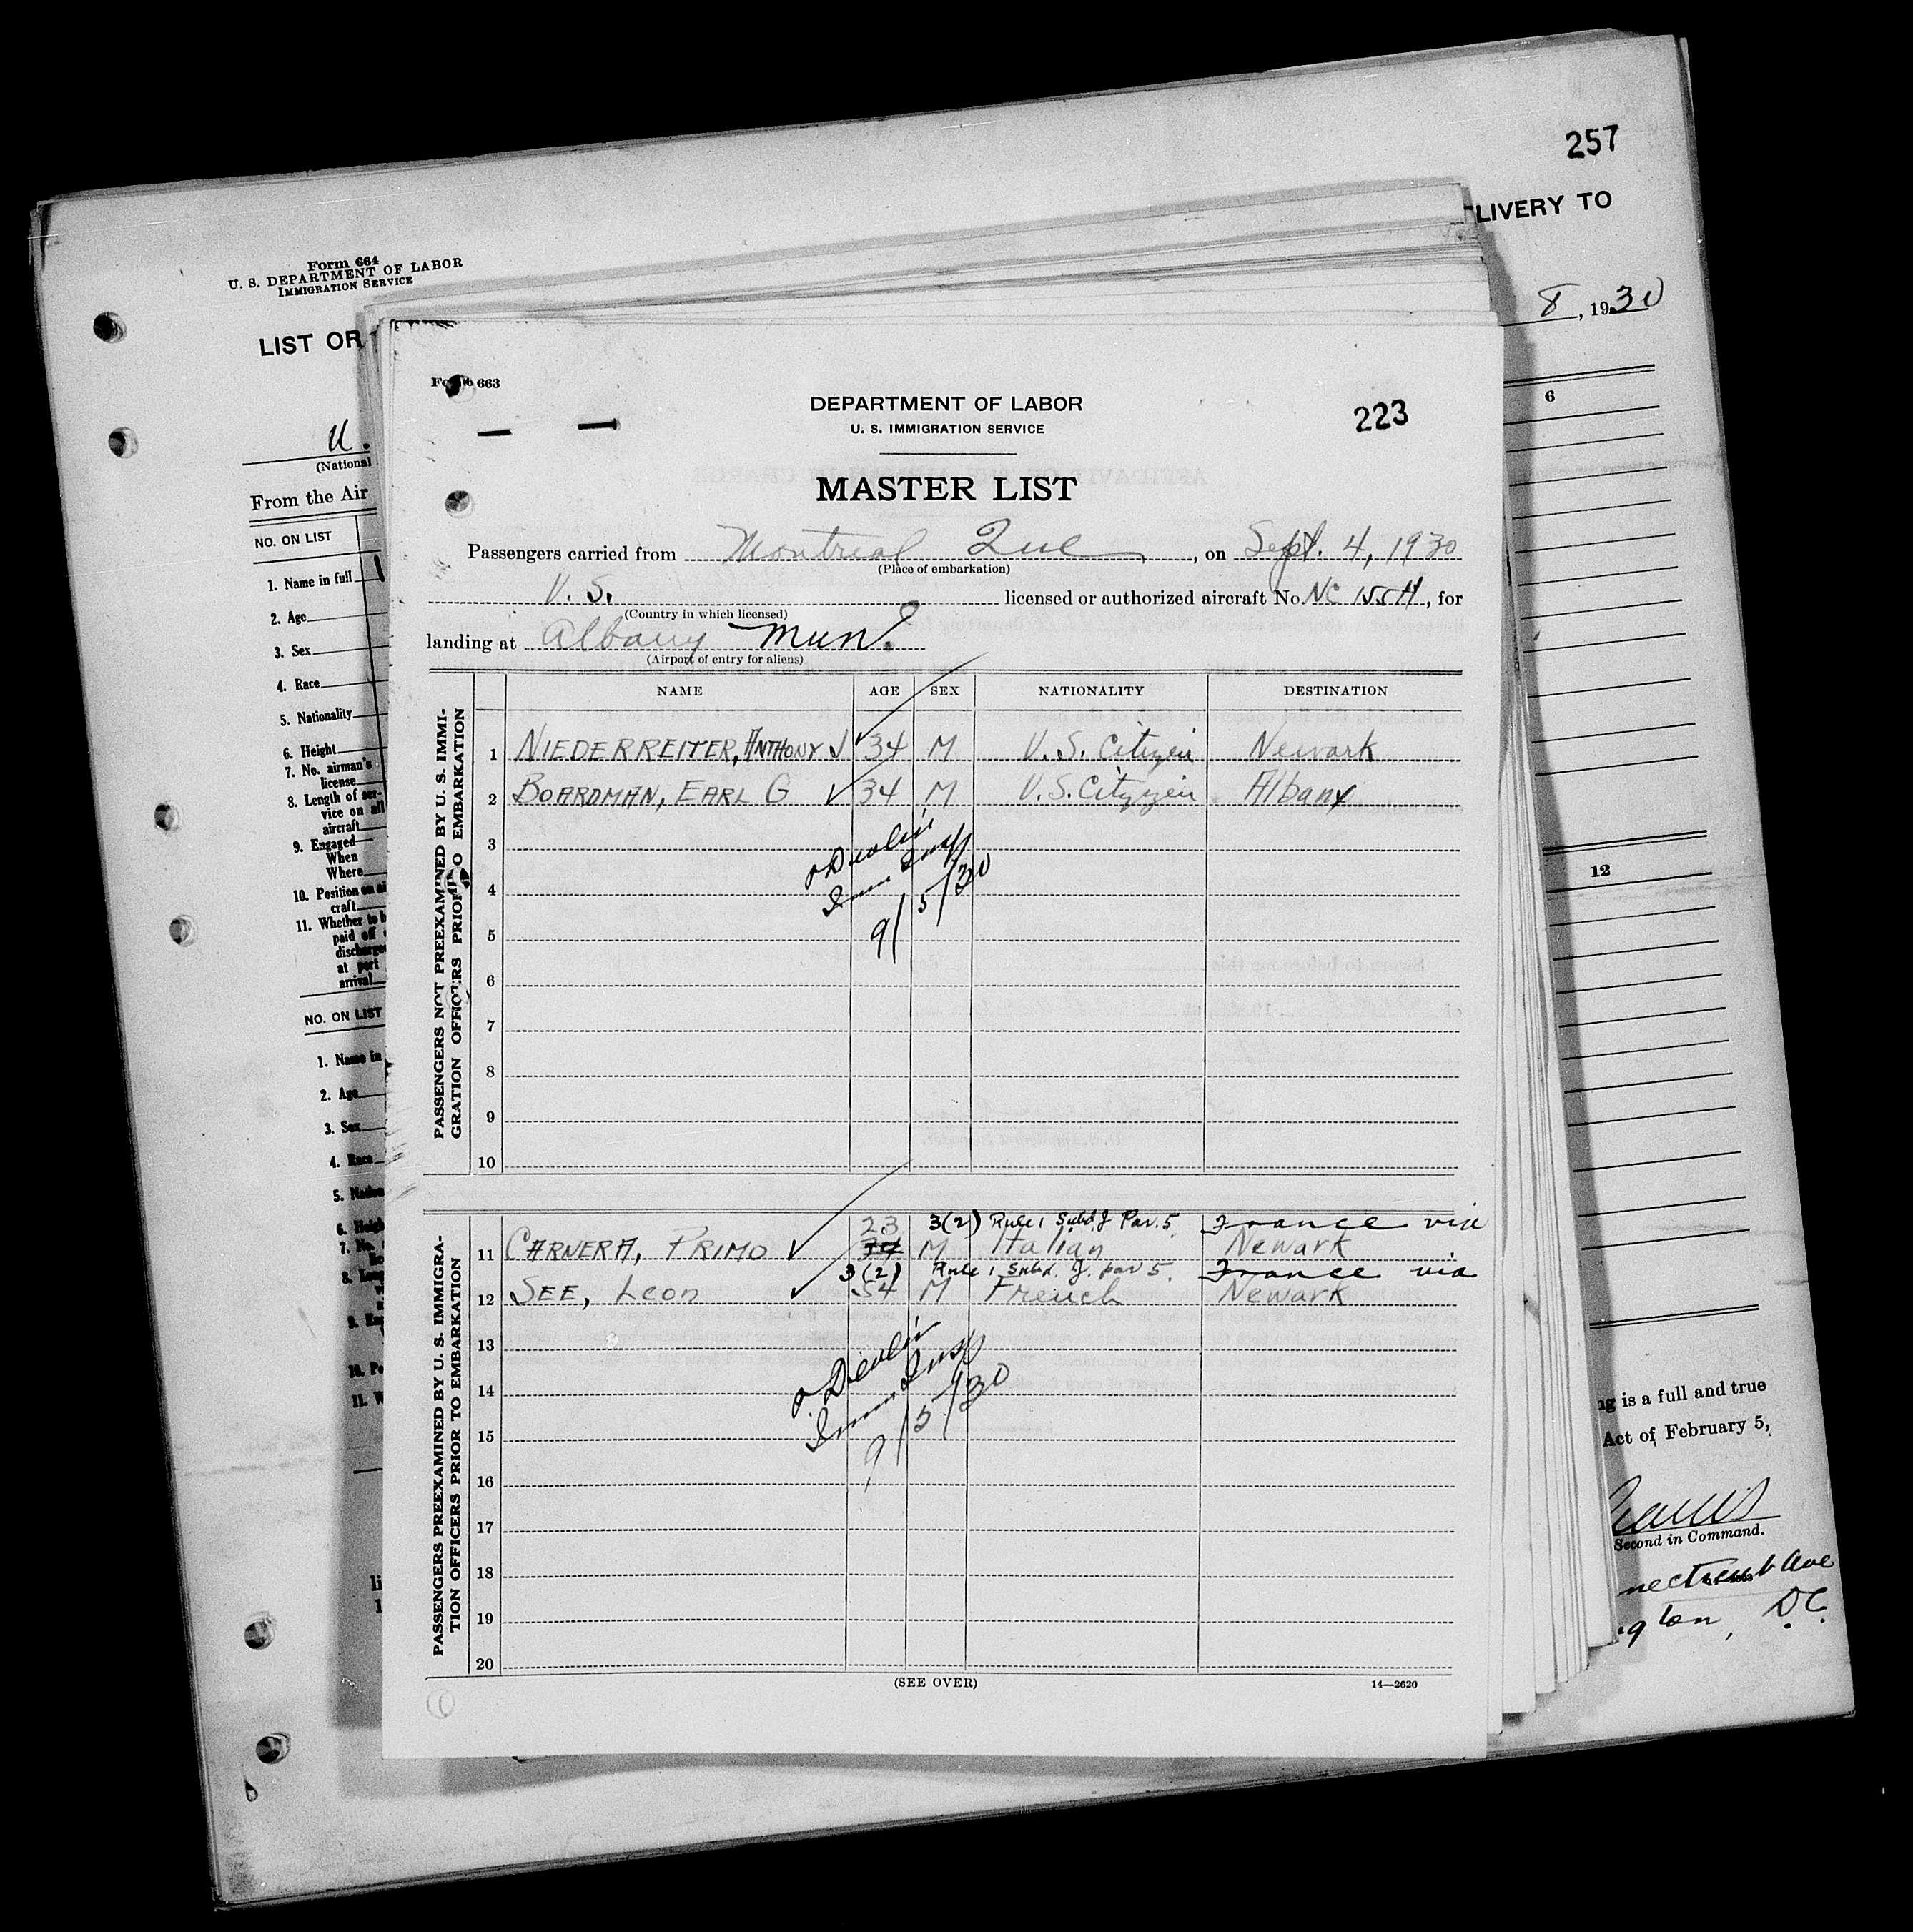 257
LIVERY TO
Form 664
U. S. DEPARTMENT OF LABOR
IMMIGRATION SERVICE
LIST OR
8, 1930
U.
(National
From the Air
NO. ON LIST
6
1. Name in full
2. Age
3. Sex
4. Race
5. Nationality
6. Height
7. No. airman's
license
8. Length of ser-
vice on all
aircraft
9. Engaged
When
Where
10. Position on ai
craft
11. Whether to b
paid off
discharge
at port
arrival
12
NO. ON LIST
1. Name in
2. Age
3. Sex
4. Race
5. Nation
6. Heigh
7. No.
8. Len
9. En
10. Po
11. W
ng is a full and true
Act of February 5,
Second in Command.
necticut Ave
gton, D.C.
Form 663
DEPARTMENT OF LABOR
U. S. IMMIGRATION SERVICE
223
MASTER LIST
Passengers carried from Montreal Que, on Sept. 4, 1930
(Place of embarkation)
U. S. licensed or authorized aircraft No. NC 155H, for
(Country in which licensed)
landing at Albany Mun.
(Airport of entry for aliens)
NAME AGE SEX NATIONALITY DESTINATION
PASSENGERS NOT PREEXAMINED BY U. S. IMMI-
GRATION OFFICERS PRIOR TO EMBARKATION
1 NIEDERREITER, ANTHONY J 34 M U. S. Citizen Newark
2 BOARDMAN, EARL G 34 M U. S. Citizen Albany
3
4
5
6
7
8
9
10
Devlin
Imm Insp
9/5/30
PASSENGERS PREEXAMINED BY U. S. IMMIGRA-
TION OFFICERS PRIOR TO EMBARKATION
23 3(2) Rule 1 Subd. J Par. 5 France via
11 CARNERA, PRIMO M Italian Newark
3(2) Rule 1 Subd. J. par 5. France via
12 SEE, Leon 54 M French Newark
13
14
15
16
17
18
19
20
Devlin
Imm Insp
9/5/30
(SEE OVER)
14—2620